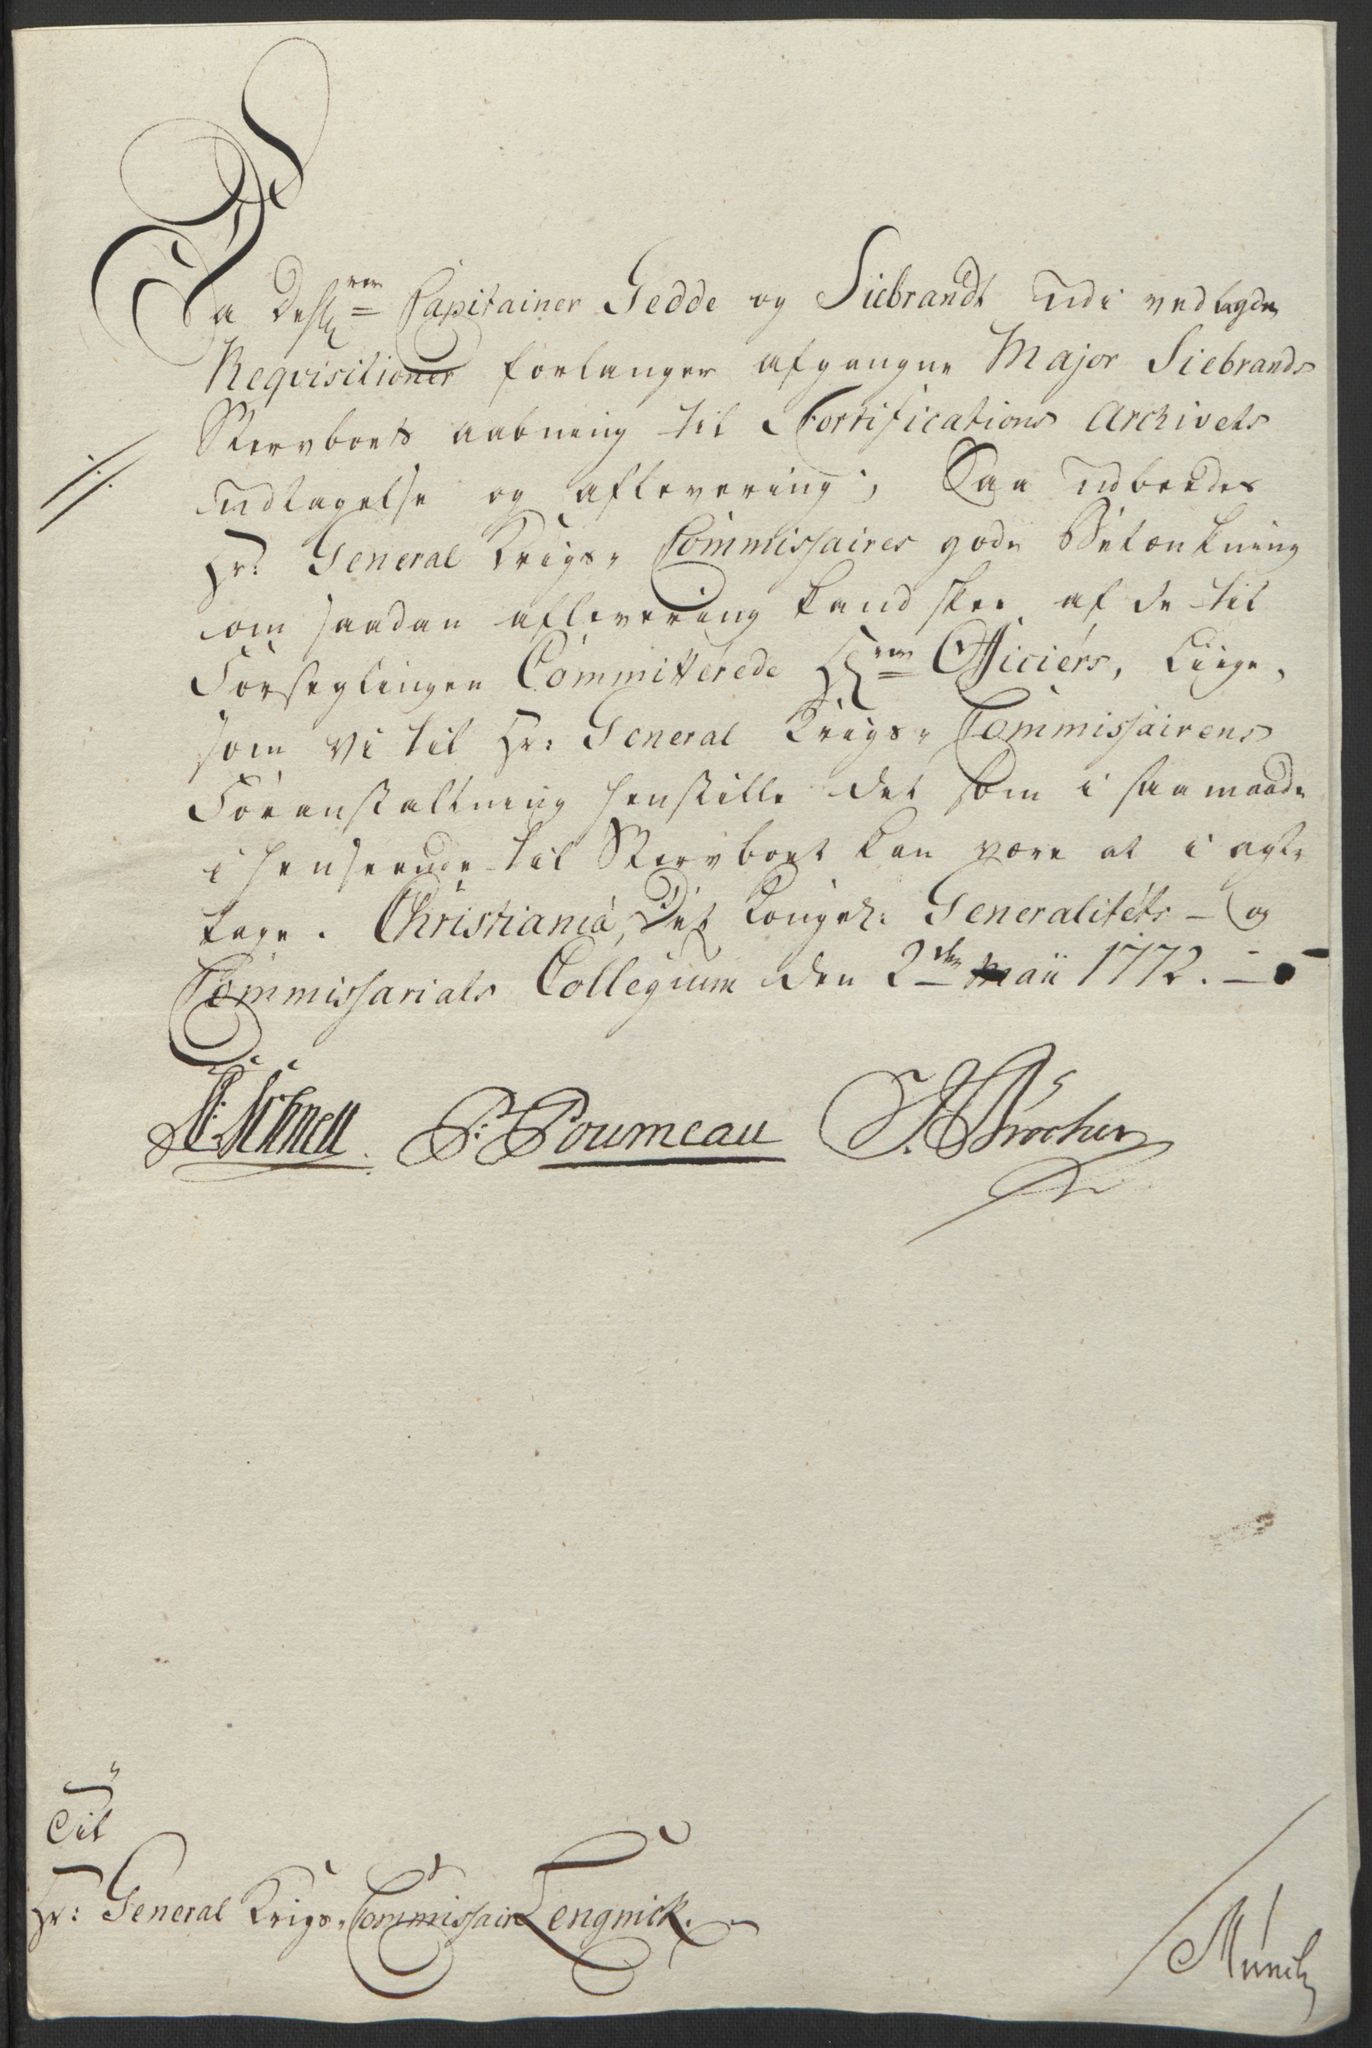 Da De Hrr: Capitainer Gedde og Siebrandt udi vedlagde
Reqvisitioner forlanger afgangne Major Siebrands
Stervboets aabning til Fortifications Archivets
udtagelse og aflevering; Saa udbeedes
Hr: General Krigs-Commissaires gode Betænkning
om saadan aflevering kand skee af de til
Forseglingen Committerede Hrr: Officiérs, Liige-
som vi til Hr: General Krigs-Commissairens
Foranstaltning henstille det som i saa maade
i henseende til Stervboet kan være at i agt-
tage. Christiania, Det Kongel: Generalitéts- og
Commissariats Collegium den 2den Maii 1772.
Schnell. P: Poumeau
Til
Hr: General Krigs-Commissair Lengnick.
Münch